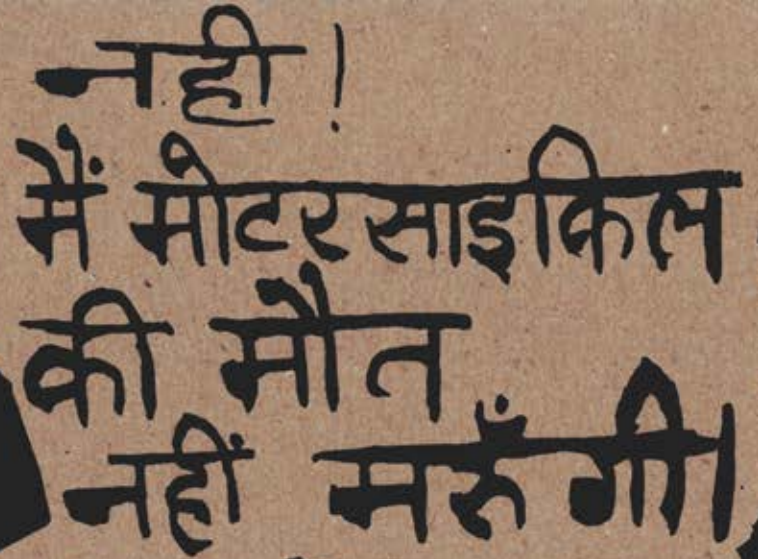 नही!
मैं मोटरसाइकिल
की मौत
नहीं मरुँगी।